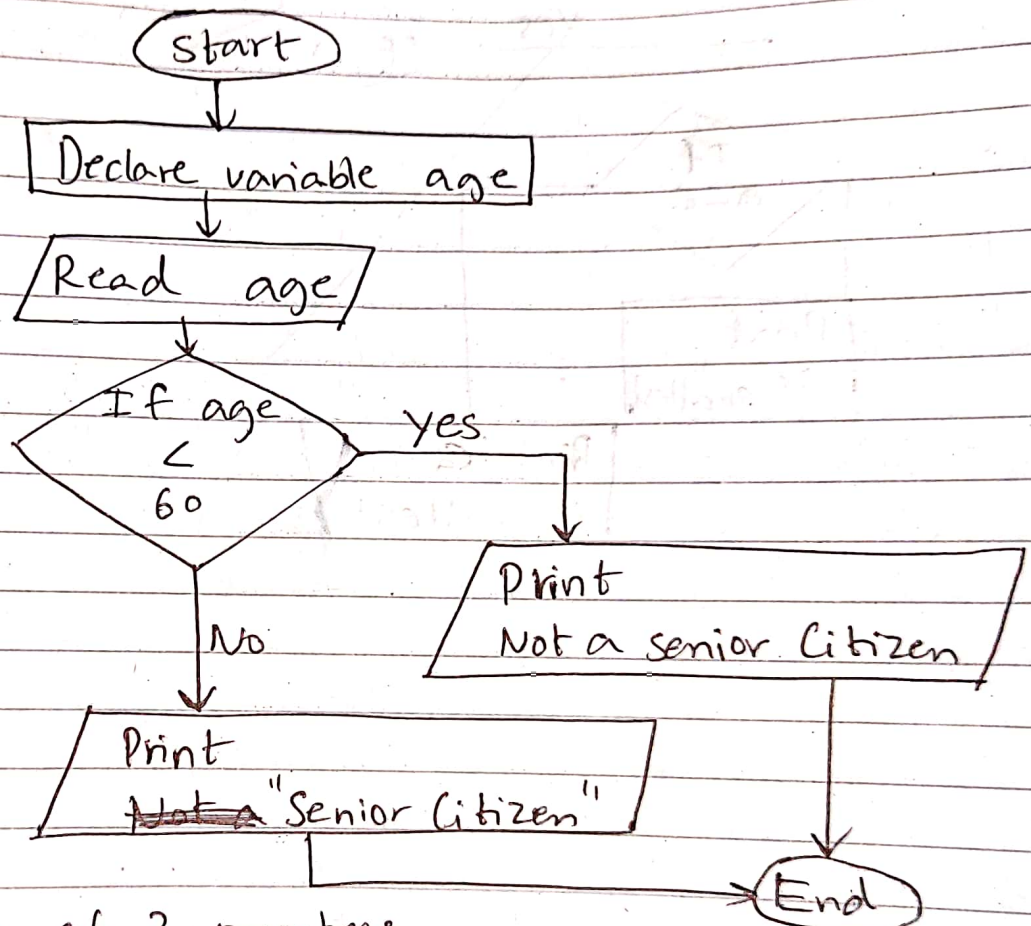 Start
Declare variable age
Read age
If age
<
60
yes
Print
Not a senior Citizen
No
Print
"Senior Citizen"
End